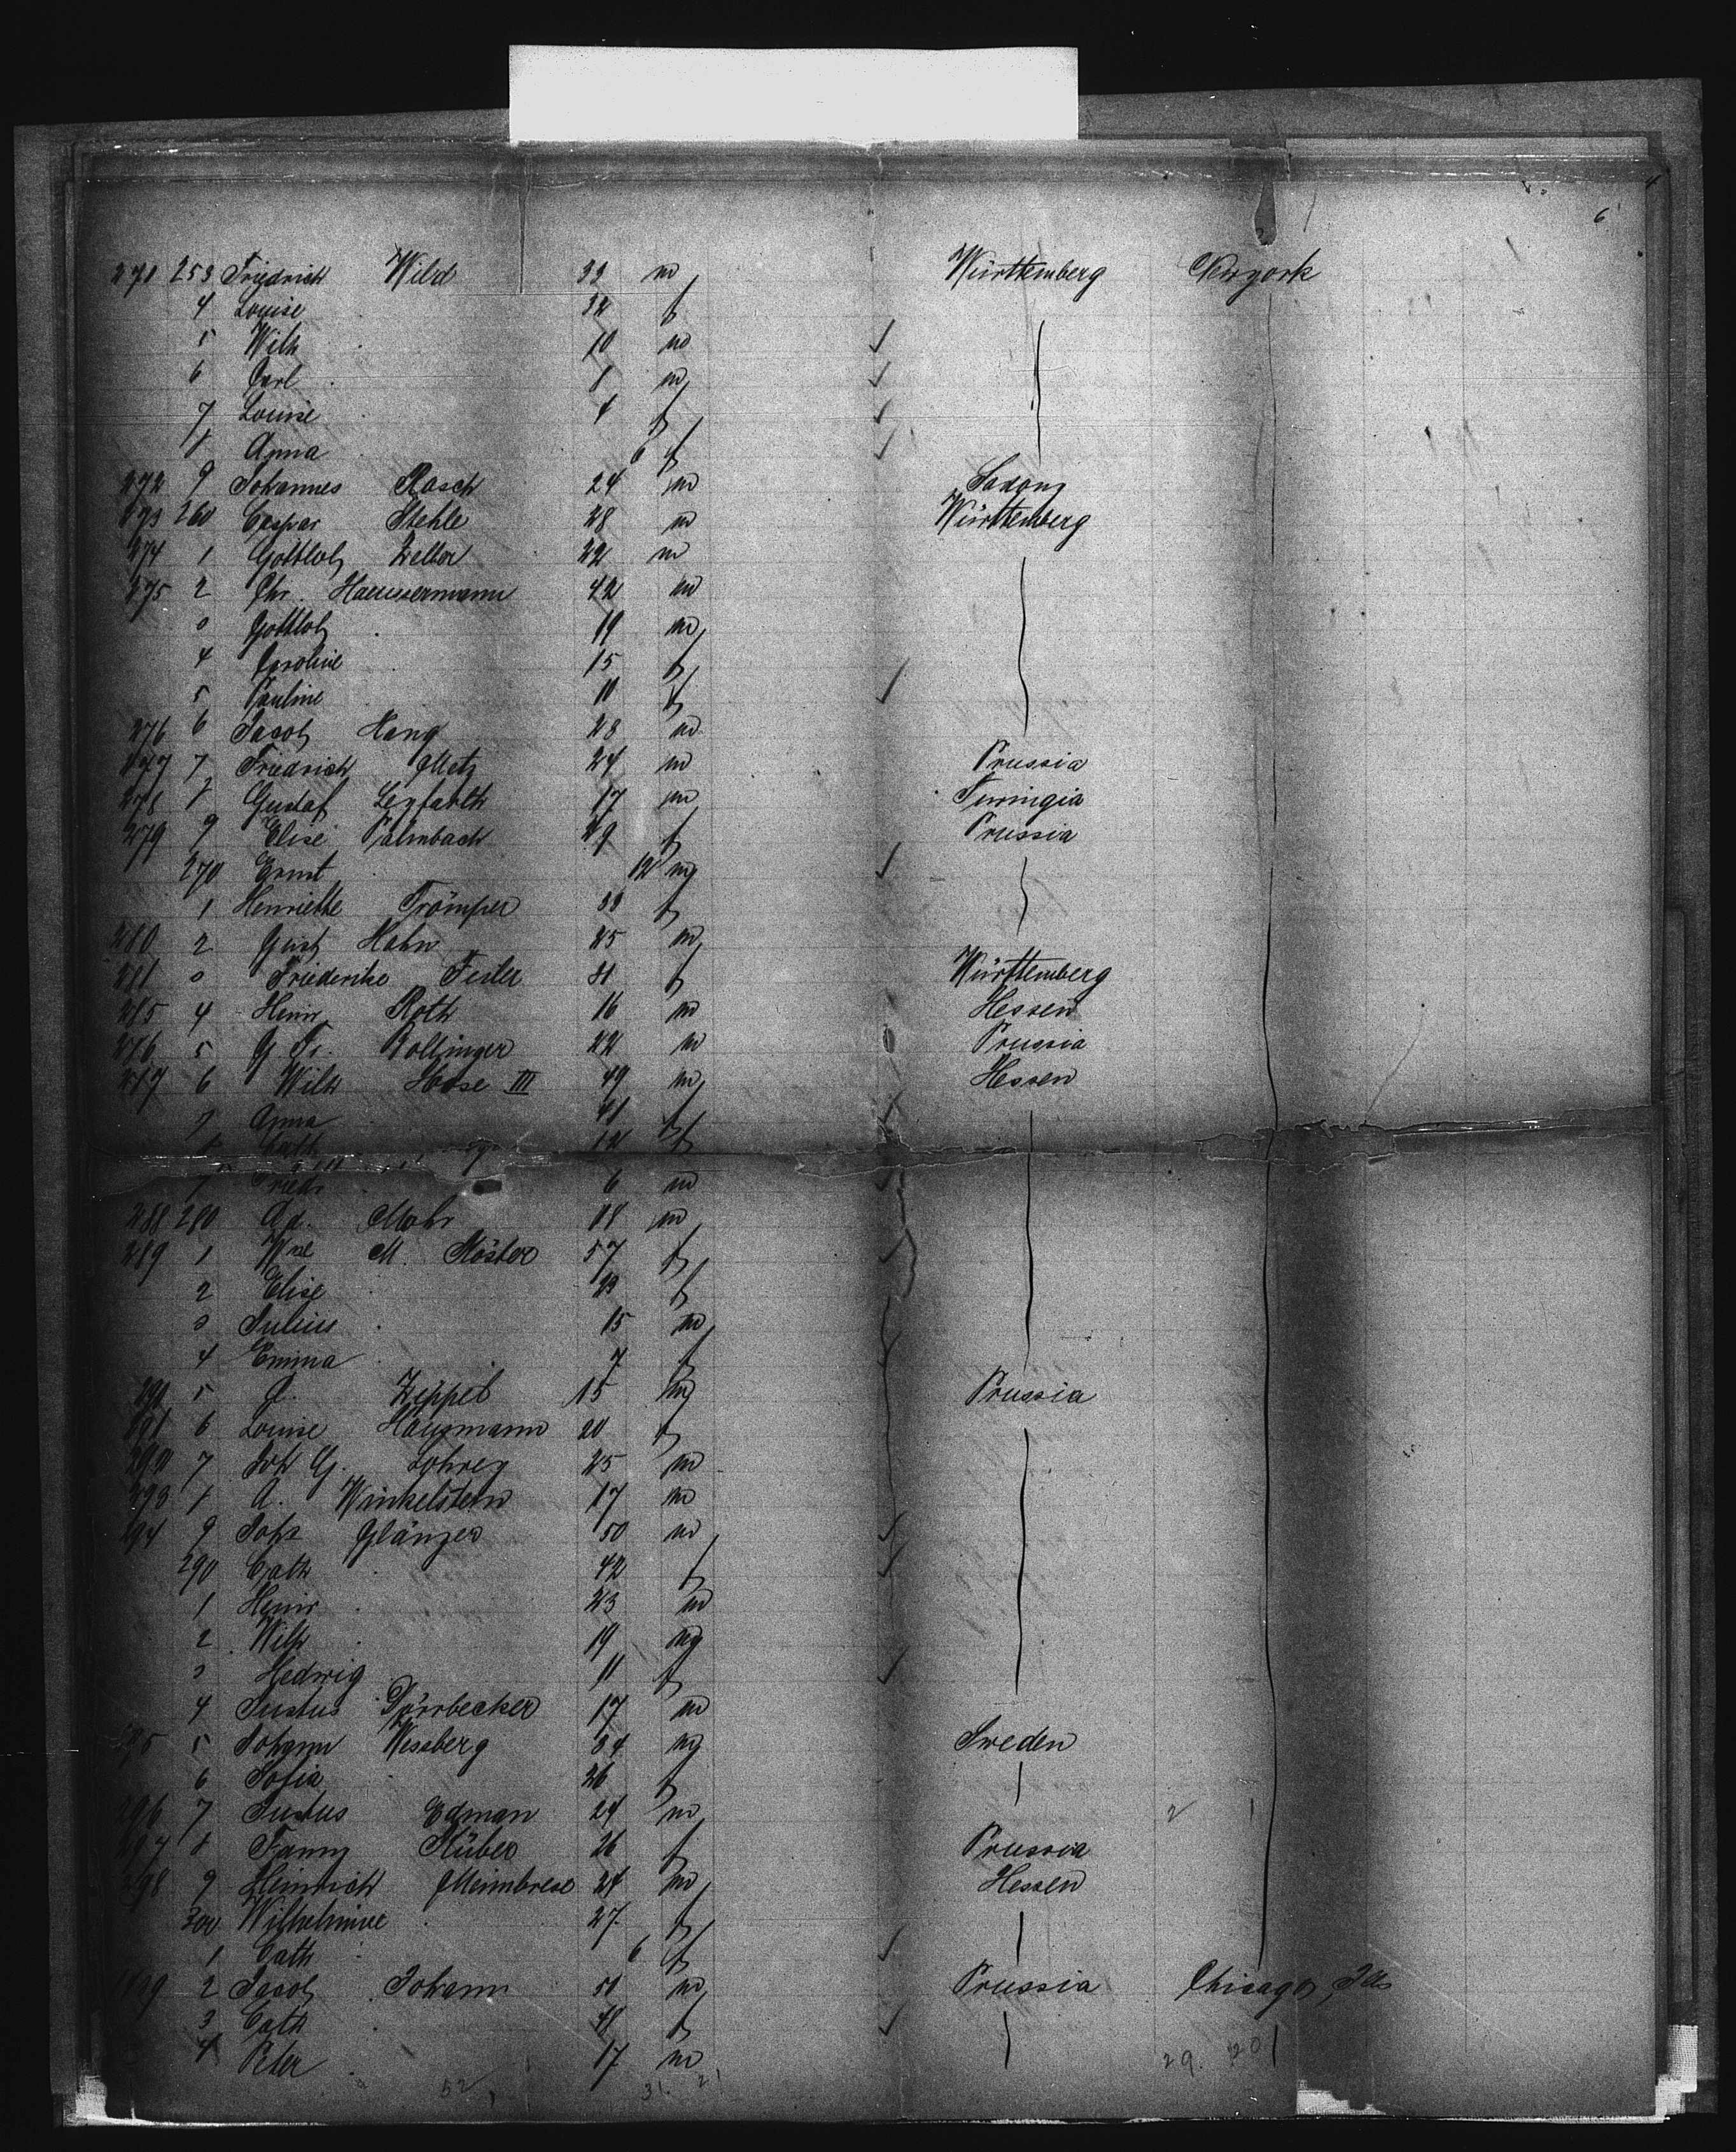 6
271 253 Friedrich Wild 33 m Württemberg Newyork
4 Louise 32 f
5 Wilh 10 m
6 Carl 8 m
7 Louise 4 f
8 Anna 6 f
272 9 Johannes Rasch 24 m Saxony
273 260 Caspar Stehle 28 m Württemberg
274 1 Gottlob Zeller 22 m
275 2 Chr. Haeussermann 42 m
3 Gottlob 19 m
4 Caroline 15 f
5 Pauline 10 f
276 6 Jacob Hang 28 m
277 7 Friedrich Metz 24 m Prussia
278 8 Gustaf Leyfarth 17 m Turingia
279 9 Elise Palmbach 29 f Prussia
270 Ernst 12 m
1 Henriette Trömper 33 f
280 2 Hahn 25 m
281 3 Friederike Feiler f Württemberg
285 4 Heinr Roth 16 m Hessen
286 5 G Fr. Bollinger 22 m Prussia
287 6 Wilh Hose III 49 m Hessen
7 Anna 41 f
8 Cath 12 f
9 Friedr 6 m
288 280 Ad. Mohr 18 m
289 1 Wwe M. Köster 57 f
2 Elise 23 f
3 Julius 15 m
4 Emma 7 f
290 5 Zeppel 15 m Prussia
291 6 Louise Hausmann 20 f
292 7 Joh G. Lohrey 25 m
293 8 A. Winkelstein 17 m
294 9 Johs Glänzer 50 m
290 Cath 42 f
1 Heinr 23 m
2 Wilh 19 m
3 Hedwig 11 f
4 Justus Dörrbecker 17 m
295 5 Johann Wessberg 34 m Sweden
6 Sofia 26 f
296 7 Justus Edman 24 m
297 8 Fanny Stüber 26 f Prussia
298 9 Heinrich Meimbrese 24 m Hessen
300 Wilhelmine 27 f
1 Cath 6 f
299 2 Jacob Johann 50 m Prussia Chicago Ills
3 Cath 48 f
4 Peter 17 m
52 31. 21 29. 20